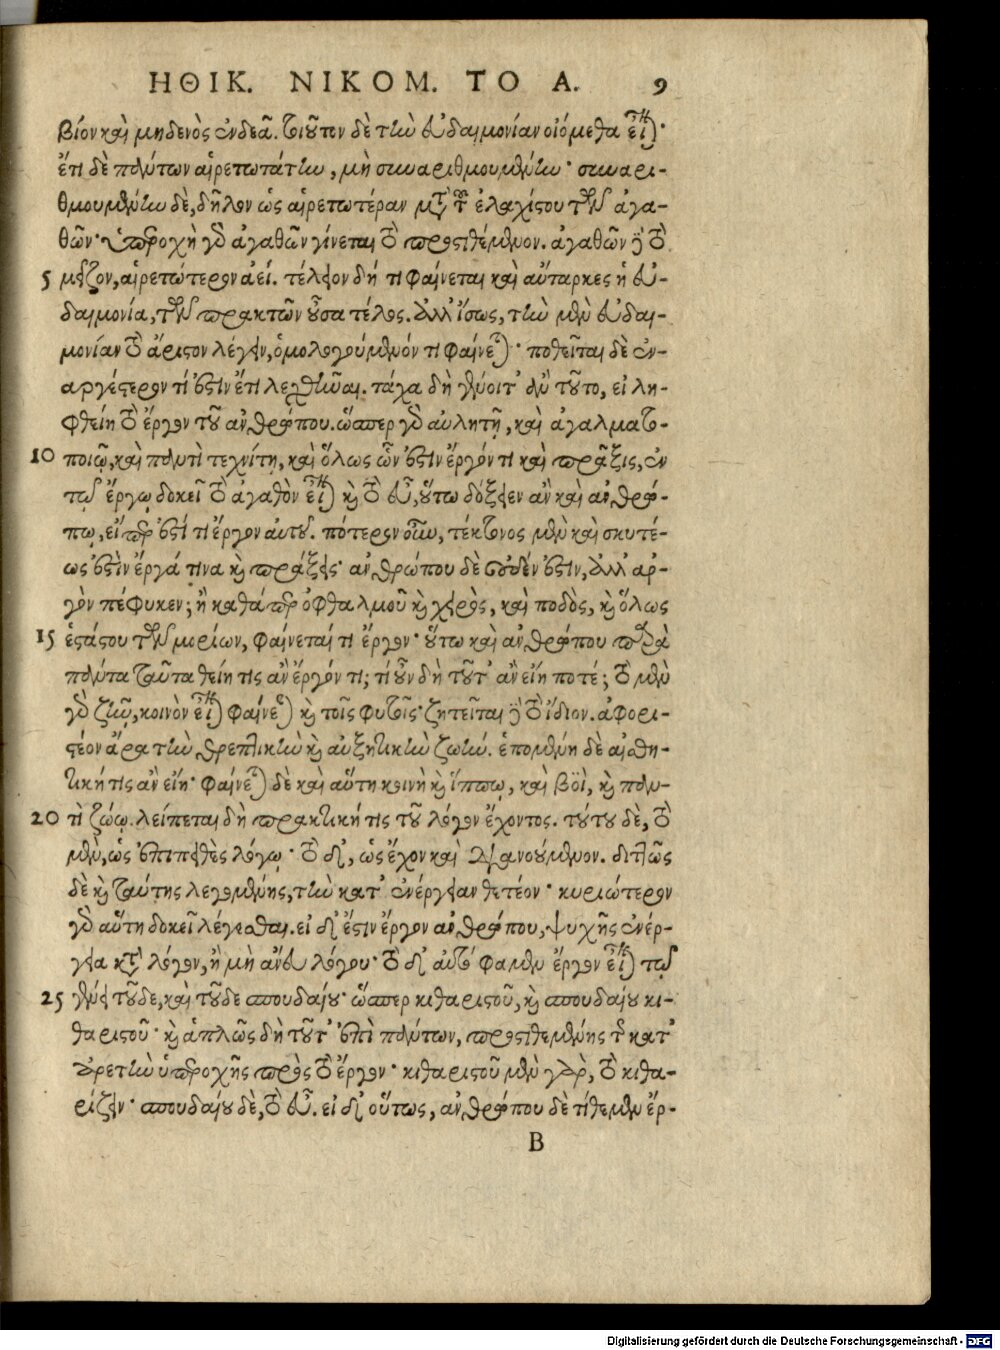 ΗΘΙΚ. ΝΙΚΟΜ. ΤΟ Α. 9
βίον καὶ μηδενὸς ἐνδεᾶ. τοιοῦτον δὲ τὴν εὐδαιμονίαν οἰόμεθα εἶναι·
ἔτι δὲ πάντων αἱρετωτάτην, μὴ συναριθμουμένην· συναρι-
θμουμένην δὲ, δῆλον ὡς αἱρετωτέραν μετὰ τοῦ ἐλαχίστου τῶν ἀγα-
θῶν· ὑπεροχὴ γὰρ ἀγαθῶν γίνεται τὸ προστιθέμενον. ἀγαθῶν δὲ τὸ
5 μεῖζον, αἱρετώτερον ἀεί. τέλειον δή τι φαίνεται καὶ αὔταρκες ἡ εὐ-
δαιμονία, τῶν πρακτῶν οὖσα τέλος. ἀλλ' ἴσως, τὴν μὲν εὐδαι-
μονίαν τὸ ἄριστον λέγειν, ὁμολογούμενόν τι φαίνεται· ποθεῖται δὲ ἐν-
αργέστερον τί ἐστιν ἔτι λεχθῆναι. τάχα δὴ γένοιτ' ἂν τοῦτο, εἰ λη-
φθείη τὸ ἔργον τοῦ ἀνθρώπου. ὥσπερ γὰρ αὐλητῇ, καὶ ἀγαλματο-
10 ποιῷ, καὶ παντὶ τεχνίτῃ, καὶ ὅλως ὧν ἐστιν ἔργόν τι καὶ πρᾶξις, ἐν
τῷ ἔργῳ δοκεῖ τὸ ἀγαθὸν εἶναι καὶ τὸ εὖ, οὕτω δόξειεν ἂν καὶ ἀνθρώ-
πῳ, εἴπερ ἐστί τι ἔργον αὐτοῦ. πότερον οὖν, τέκτονος μὲν καὶ σκυτέ-
ως ἐστὶν ἔργά τινα καὶ πράξεις· ἀνθρώπου δὲ οὐδέν ἐστιν, ἀλλ' ἀρ-
γὸν πέφυκεν; ἢ καθάπερ ὀφθαλμοῦ καὶ χειρὸς, καὶ ποδὸς, καὶ ὅλως
15 ἑκάστου τῶν μορίων, φαίνεταί τι ἔργον· οὕτω καὶ ἀνθρώπου παρὰ
πάντα ταῦτα θείη τις ἂν ἔργόν τι; τί οὖν δὴ τοῦτ' ἂν εἴη ποτέ; τὸ μὲν
γὰρ ζῆν, κοινὸν εἶναι φαίνεται καὶ τοῖς φυτοῖς· ζητεῖται δὲ τὸ ἴδιον. ἀφορι-
στέον ἄρα τὴν θρεπτικὴν καὶ αὐξητικὴν ζωήν. ἑπομένη δὲ αἰσθη-
τική τις ἂν εἴη· φαίνεται δὲ καὶ αὕτη κοινὴ καὶ ἵππῳ, καὶ βοῒ, καὶ παν-
20 τὶ ζώῳ. λείπεται δὴ πρακτική τις τοῦ λόγον ἔχοντος. τούτου δὲ, τὸ
μὲν, ὡς ἐπιπειθὲς λόγῳ· τὸ δ', ὡς ἔχον καὶ διανοούμενον. διττῶς
δὲ καὶ ταύτης λεγομένης, τὴν κατ' ἐνέργειαν θετέον· κυριώτερον
γὰρ αὕτη δοκεῖ λέγεσθαι. εἰ δ' ἔστιν ἔργον ἀνθρώπου, ψυχῆς ἐνέρ-
γεια κατὰ λόγον, ἢ μὴ ἄνευ λόγου· τὸ δ' αὐτό φαμεν ἔργον εἶναι τῷ
25 γένει τοῦδε, καὶ τοῦδε σπουδαίου· ὥσπερ κιθαριστοῦ, καὶ σπουδαίου κι-
θαριστοῦ· καὶ ἁπλῶς δὴ τοῦτ' ἐπὶ πάντων, προστιθεμένης τῆς κατ'
ἀρετὴν ὑπεροχῆς πρὸς τὸ ἔργον· κιθαριστοῦ μὲν γὰρ, τὸ κιθα-
ρίζειν· σπουδαίου δὲ, τὸ εὖ. εἰ δ' οὕτως, ἀνθρώπου δὲ τίθεμεν ἔρ-
B
Digitalisierung gefördert durch die Deutsche Forschungsgemeinschaft - DFG